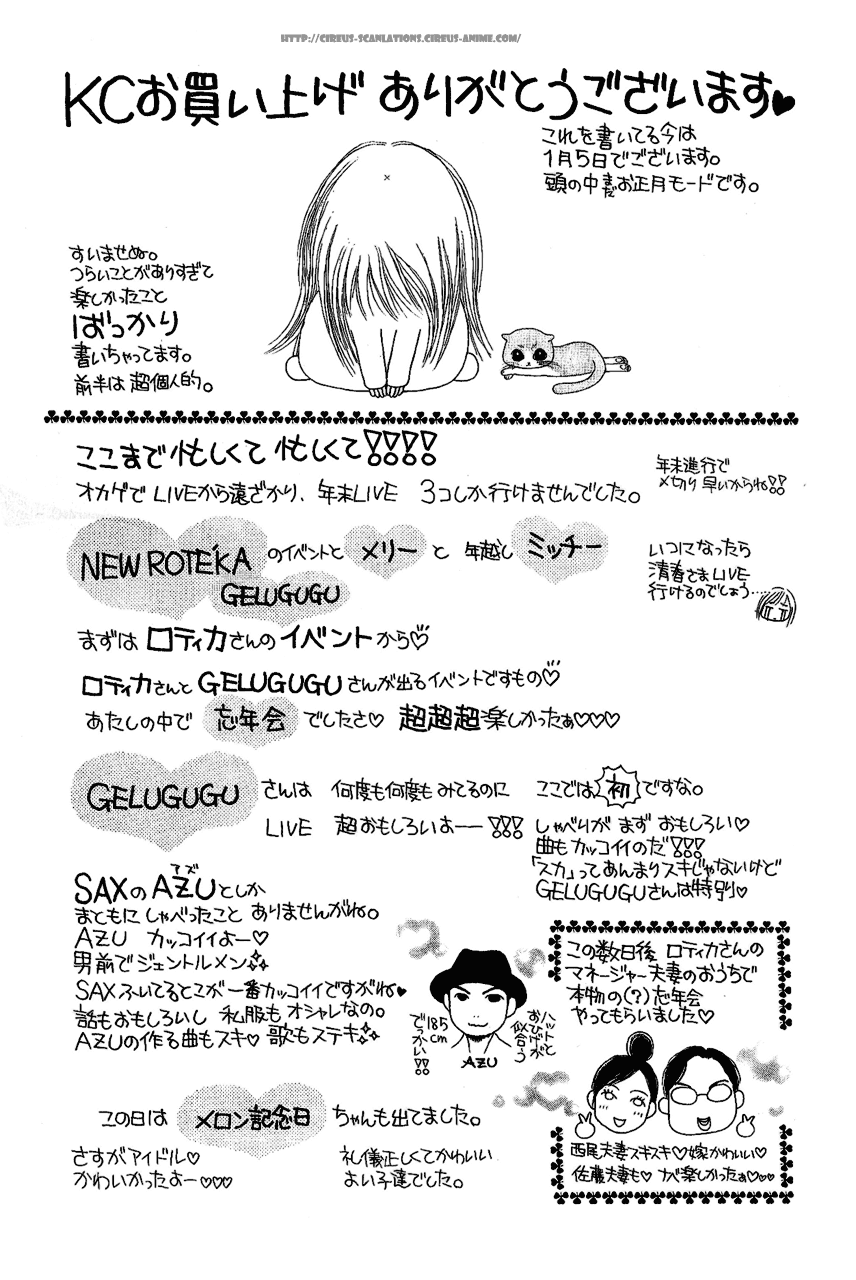 HTTP://CIREUS-SCANLATIONS.CIREUS-ANIME.COM/
KCお買い上げ ありがとうございます♥
これを書いてる今は
1月5日でございます。
頭の中まだお正月モードです。
すいませぬ。
つらいことがありすぎて
楽しかったこと
ばっかり
書いちゃってます。
前半は超個人的。
ここまで忙しくて忙しくて!!!!
オカゲでLIVEから遠ざかり、年末LIVE 3コしか行けませんでした。
年末進行で
〆切り早いからね!!
NEW ROTE'KAのイベントとメリーと年越しミッチー
GELUGUGU
いつになったら
清春さまLIVE
行けるのでしょう……
まずはロティカさんのイベントから♡
ロティカさんとGELUGUGUさんが出るイベントですもの♡
あたしの中で忘年会でしたさ♡ 超超超楽しかったぁ♡♡♡
GELUGUGUさんは 何度も何度もみてるのに ここでは初ですな。
LIVE 超おもしろいよー!!!
しゃべりがまずおもしろい♡
曲もカッコイイのだ!!!
「スカ」ってあんまりスキじゃないけど
GELUGUGUさんは特別♥
アズ
SAXのAZUとしか
まともにしゃべったことありませんがね。
AZU カッコイイよー♡
男前でジェントルメン
SAXふいてるとこが一番カッコイイですがね♥
話もおもしろいし 私服もオシャレなの。
AZUの作る曲もスキ♡ 歌もステキ
ハットと
おひげが
似合う
185cm
でかい!!
AZU
この数日後 ロティカさんの
マネージャー夫妻のおうちで
本物の(?)忘年会
やってもらいました♡
西尾夫妻スキスキ♡嫁かわいい♡
佐藤夫妻も♡ ナベ楽しかったぁ♡♡♡
この日は メロン記念日 ちゃんも出てました。
さすがアイドル♡
かわいかったよー♡♡♡
礼儀正しくてかわいい
よい子達でした。